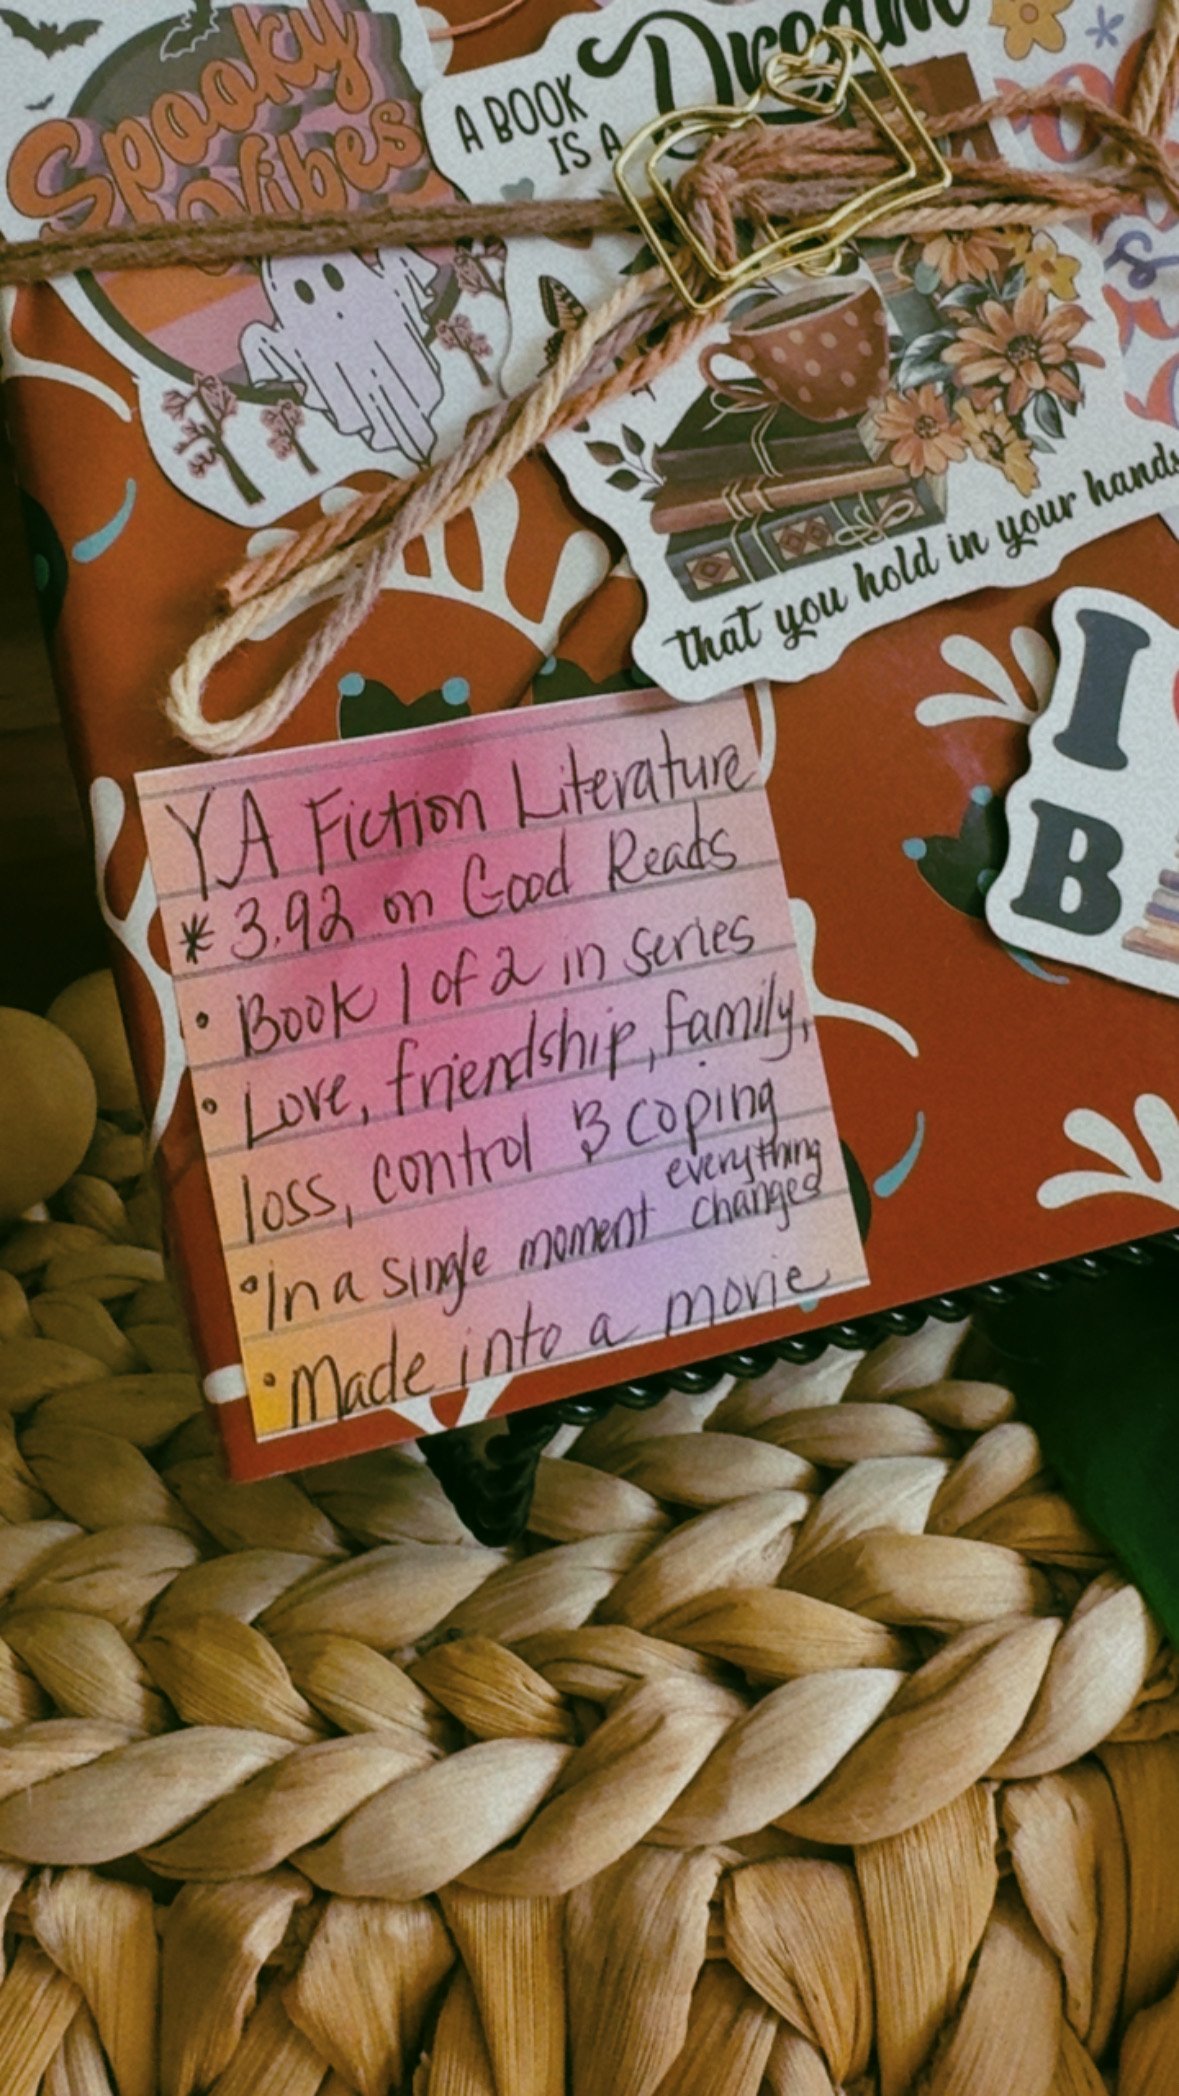 Spooky
Vibes
A BOOK
IS A
Dream
that you hold in your hands
I
B
YA Fiction Literature
* 3.92 on Good Reads
• Book 1 of 2 in series
• Love, friendship, family,
loss, control & coping
• In a single moment everything
changes
• Made into a movie